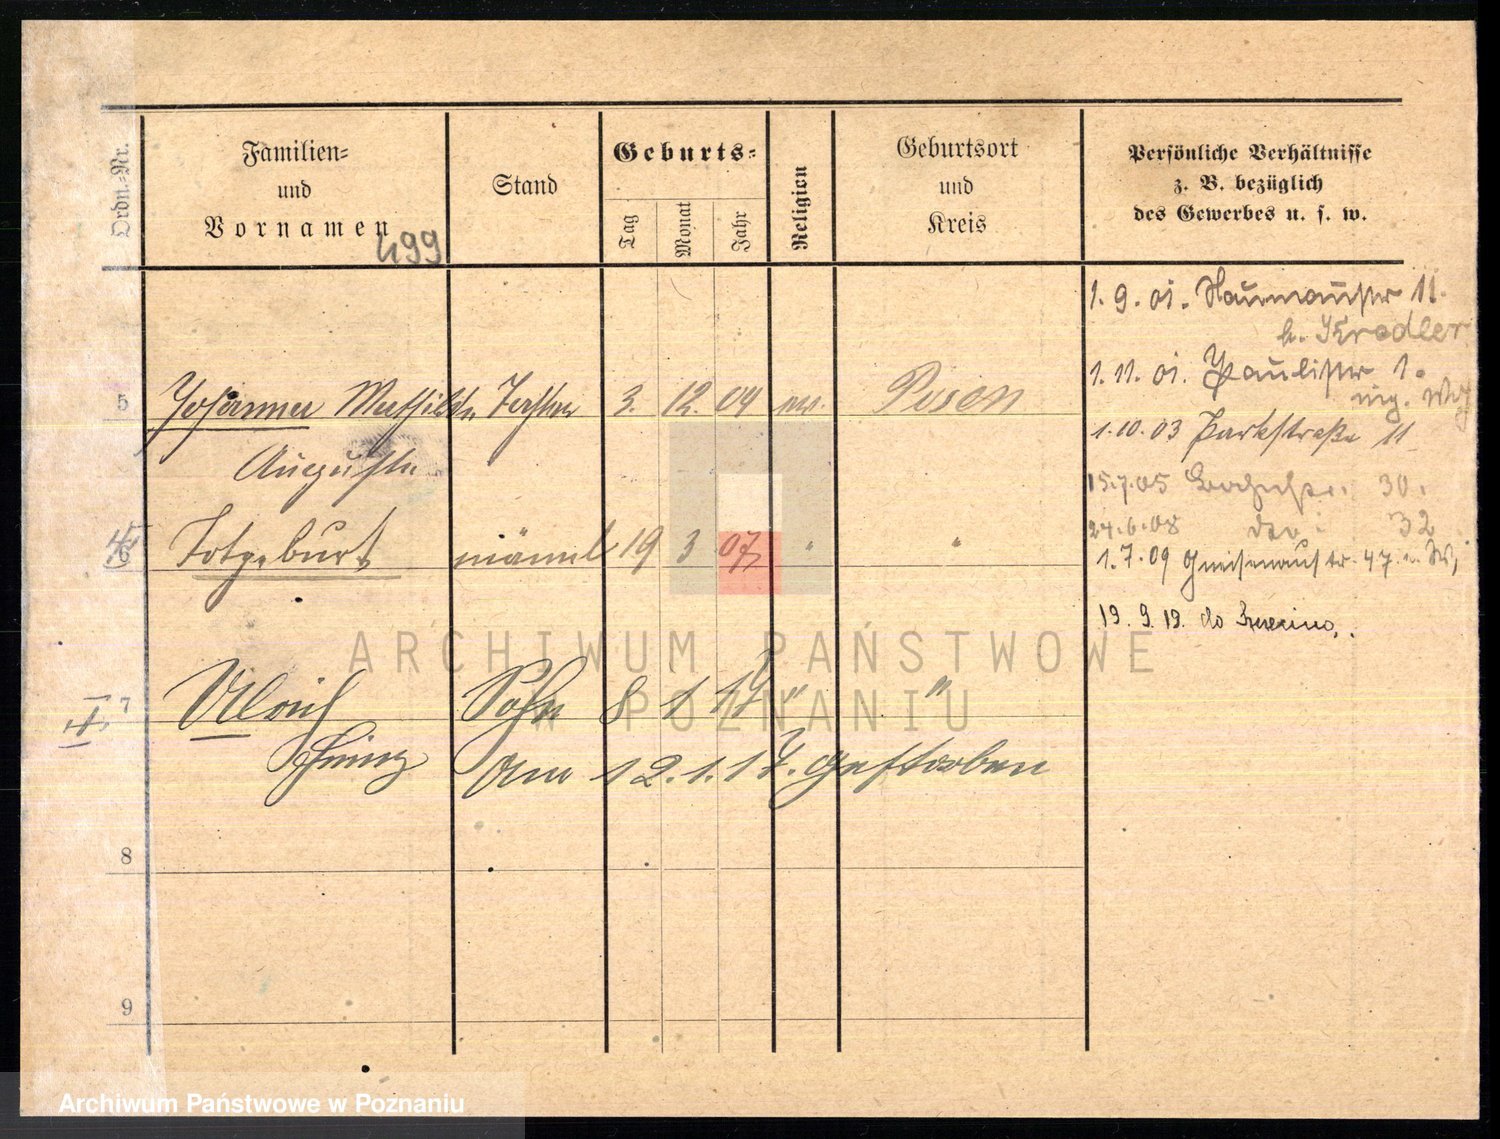 Ordn.-Nr.
Familien-
und
Vornamen
499
Stand
Geburts-
Tag
Monat
Jahr
Religion
Geburtsort
und
Kreis
Persönliche Verhältnisse
z. B. bezüglich
des Gewerbes u. s. w.
5 Johanna Mathilde Tochter 3. 12. 04 ev. Posen
Auguste
6 Totgeburt männl 19 3 07 " "
7 Ulrich Sohn 8 1 17 " "
Heinz am 12.1.17. gestorben
8
9
1. 9. 01. Naumannstr 11.
b. Kradler
1. 11. 01. Paulistr 1.
1.10.03 Parkstraße 11
15.7.05 30.
24.6.08 do. 32
1.7.09 Gneisenaustr. 47.
19. 9. 19. do
ARCHIWUM PAŃSTWOWE
W POZNANIU
Archiwum Państwowe w Poznaniu